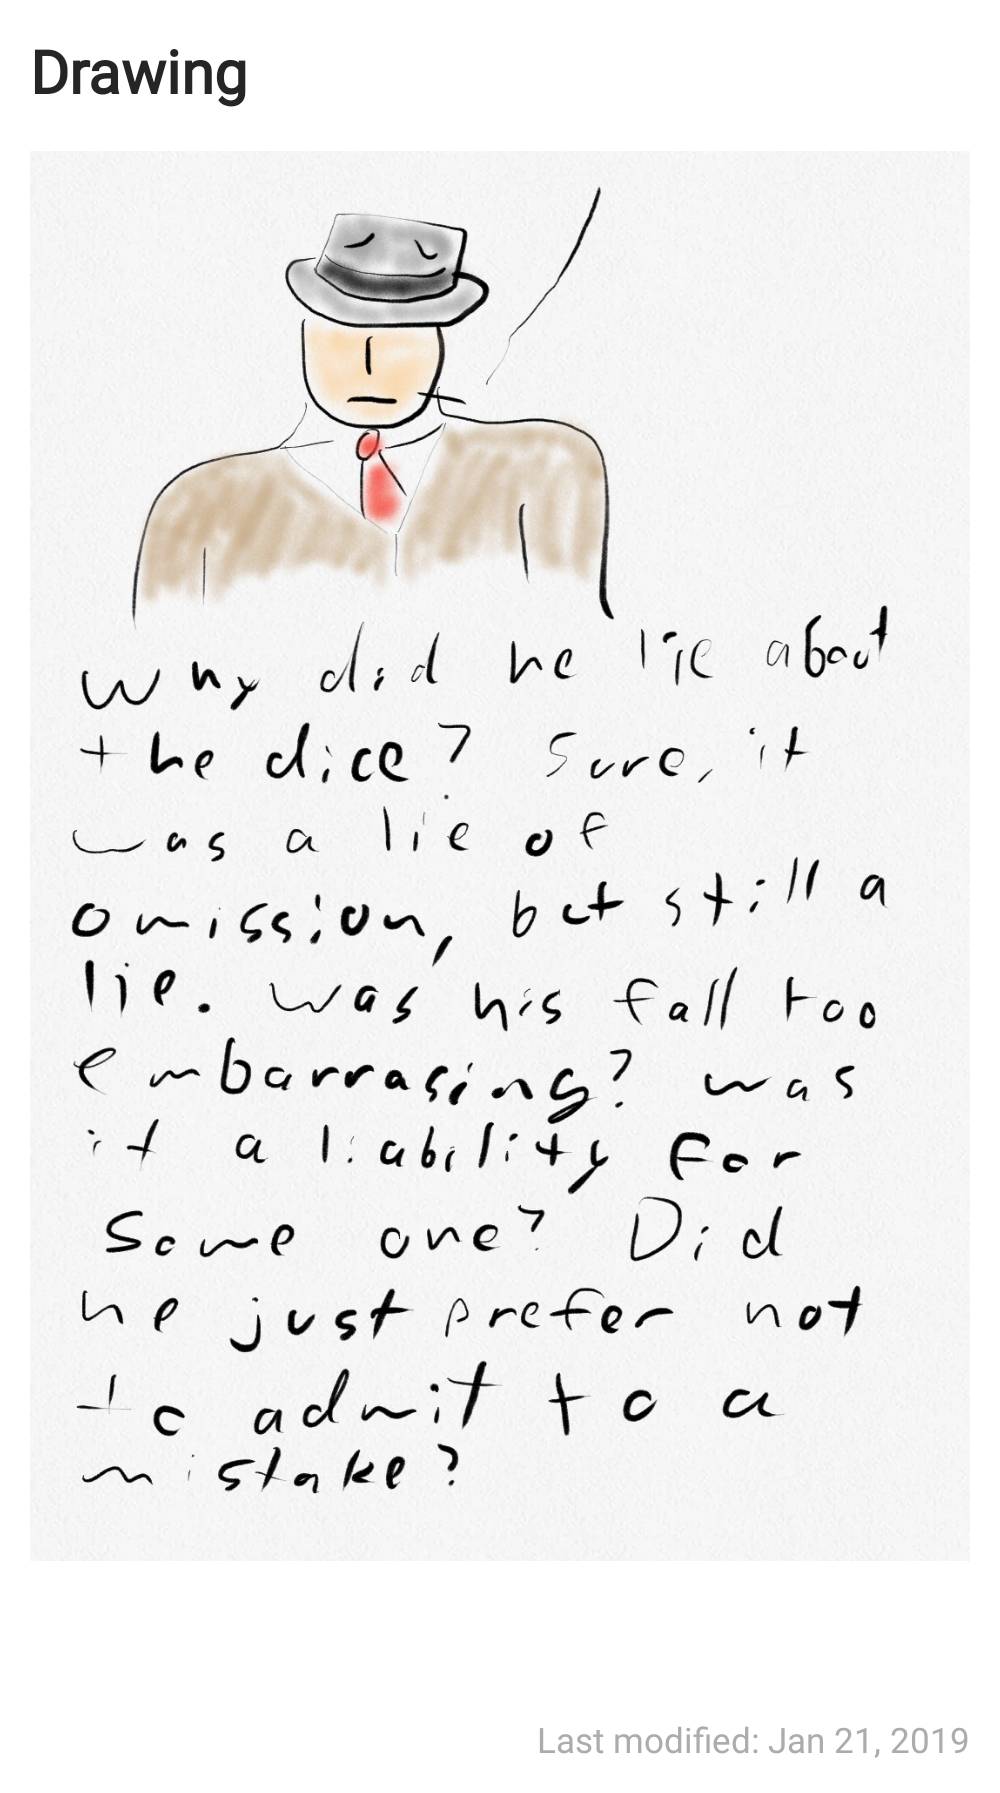 Drawing
Why did he lie about
the dice? Sure, it
was a lie of
omission, but still a
lie. was his fall too
embarrasing? was
it a liability for
some one? Did
he just prefer not
to admit to a
mistake?
Last modified: Jan 21, 2019